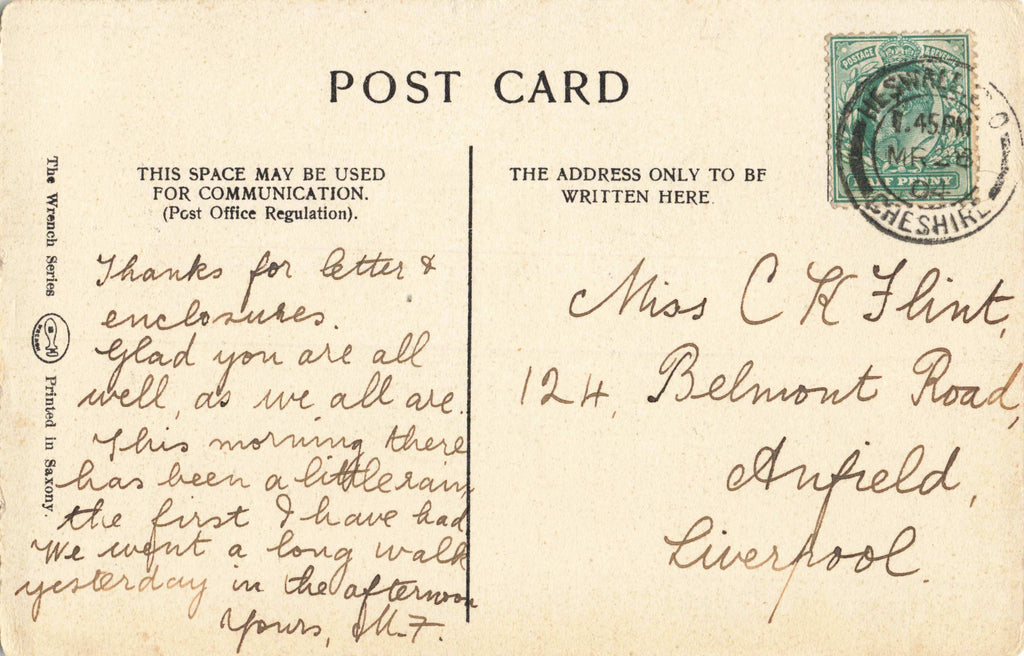 POST CARD
THIS SPACE MAY BE USED
FOR COMMUNICATION.
(Post Office Regulation).
THE ADDRESS ONLY TO BE
WRITTEN HERE
POSTAGE & REVENUE
HALF PENNY
HESWALL S.O
1.45PM
MR 28
04
CHESHIRE
The Wrench Series
Printed in Saxony.
Thanks for letter &
enclosures.
Glad you are all
well, as we all are.
This morning there
has been a little rain
the first I have had
We went a long walk
yesterday in the afternoon
Yours, M.F.
Miss C K Flint,
124, Belmont Road,
Anfield,
Liverpool.